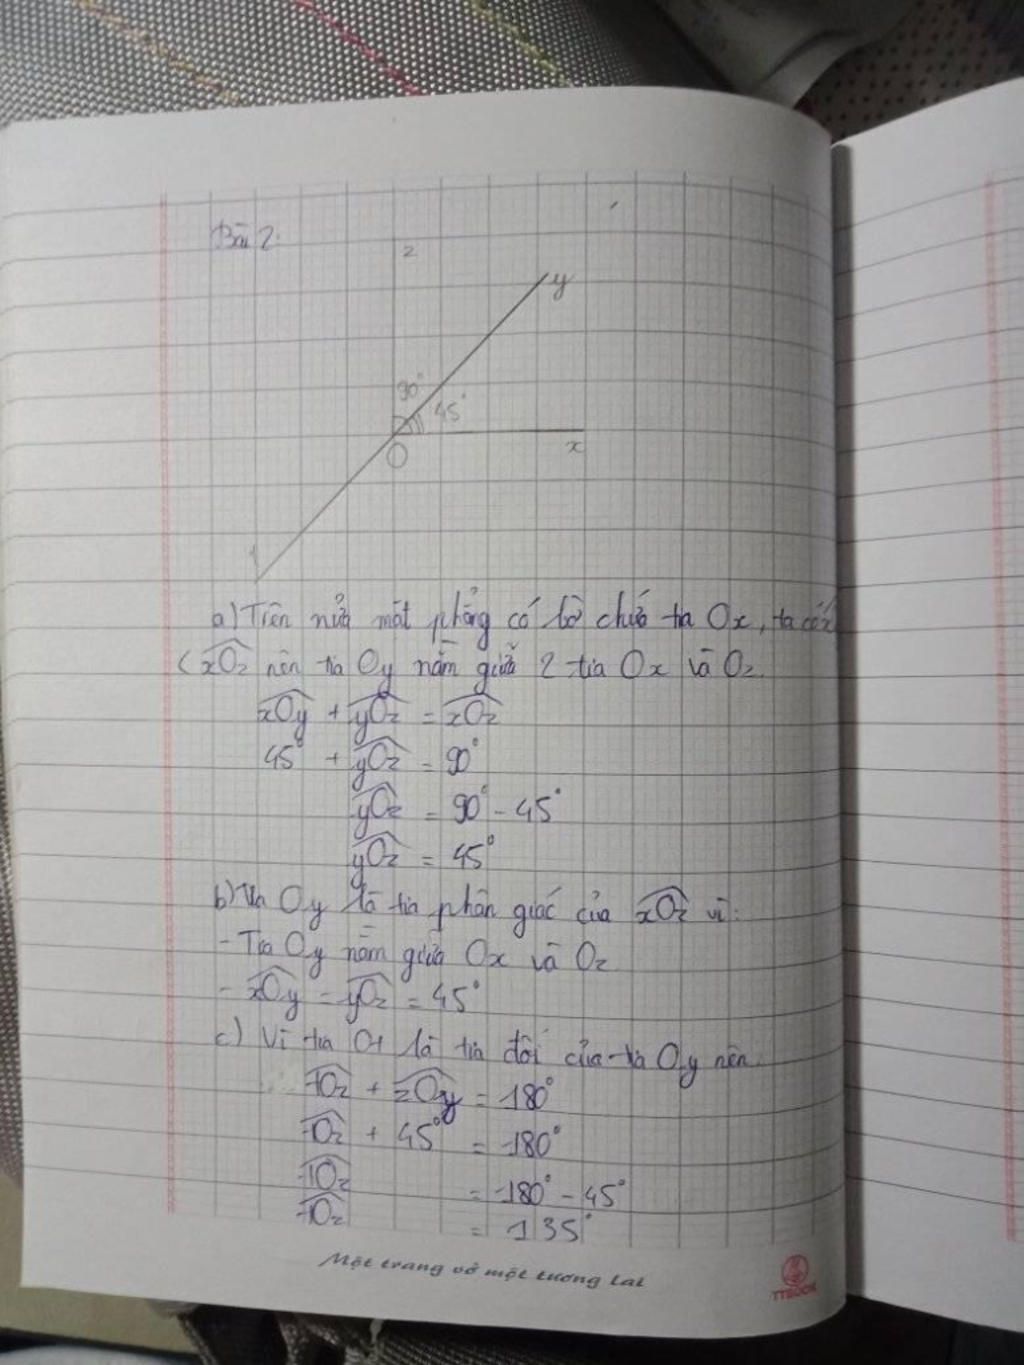 Bài 2:
z
y
90°
45°
O
x
t
a) Trên nửa mặt phẳng có bờ chứa tia Ox, ta có
< xOz nên tia Oy nằm giữa 2 tia Ox và Oz.
xOy + yOz = xOz
45° + yOz = 90°
yOz = 90° - 45°
yOz = 45°
b) Tia Oy là tia phân giác của xOz vì:
- Tia Oy nằm giữa Ox và Oz
- xOy = yOz = 45°
c) Vì tia Ot là tia đối của tia Oy nên:
tOz + zOy = 180°
tOz + 45° = 180°
tOz = 180° - 45°
tOz = 135°
Một trang vở một tương lai
TTBOOK